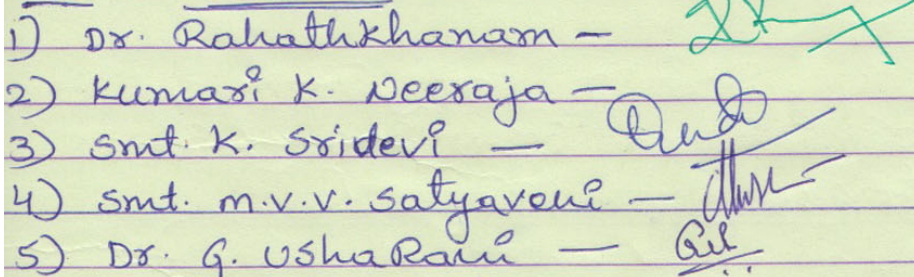 1) Dr. Rahathkhanam –
2) Kumari K. Neeraja –
3) Smt. K. Sridevi –
4) Smt. M.V.V. Satyavani –
5) Dr. G. Usha Rani –